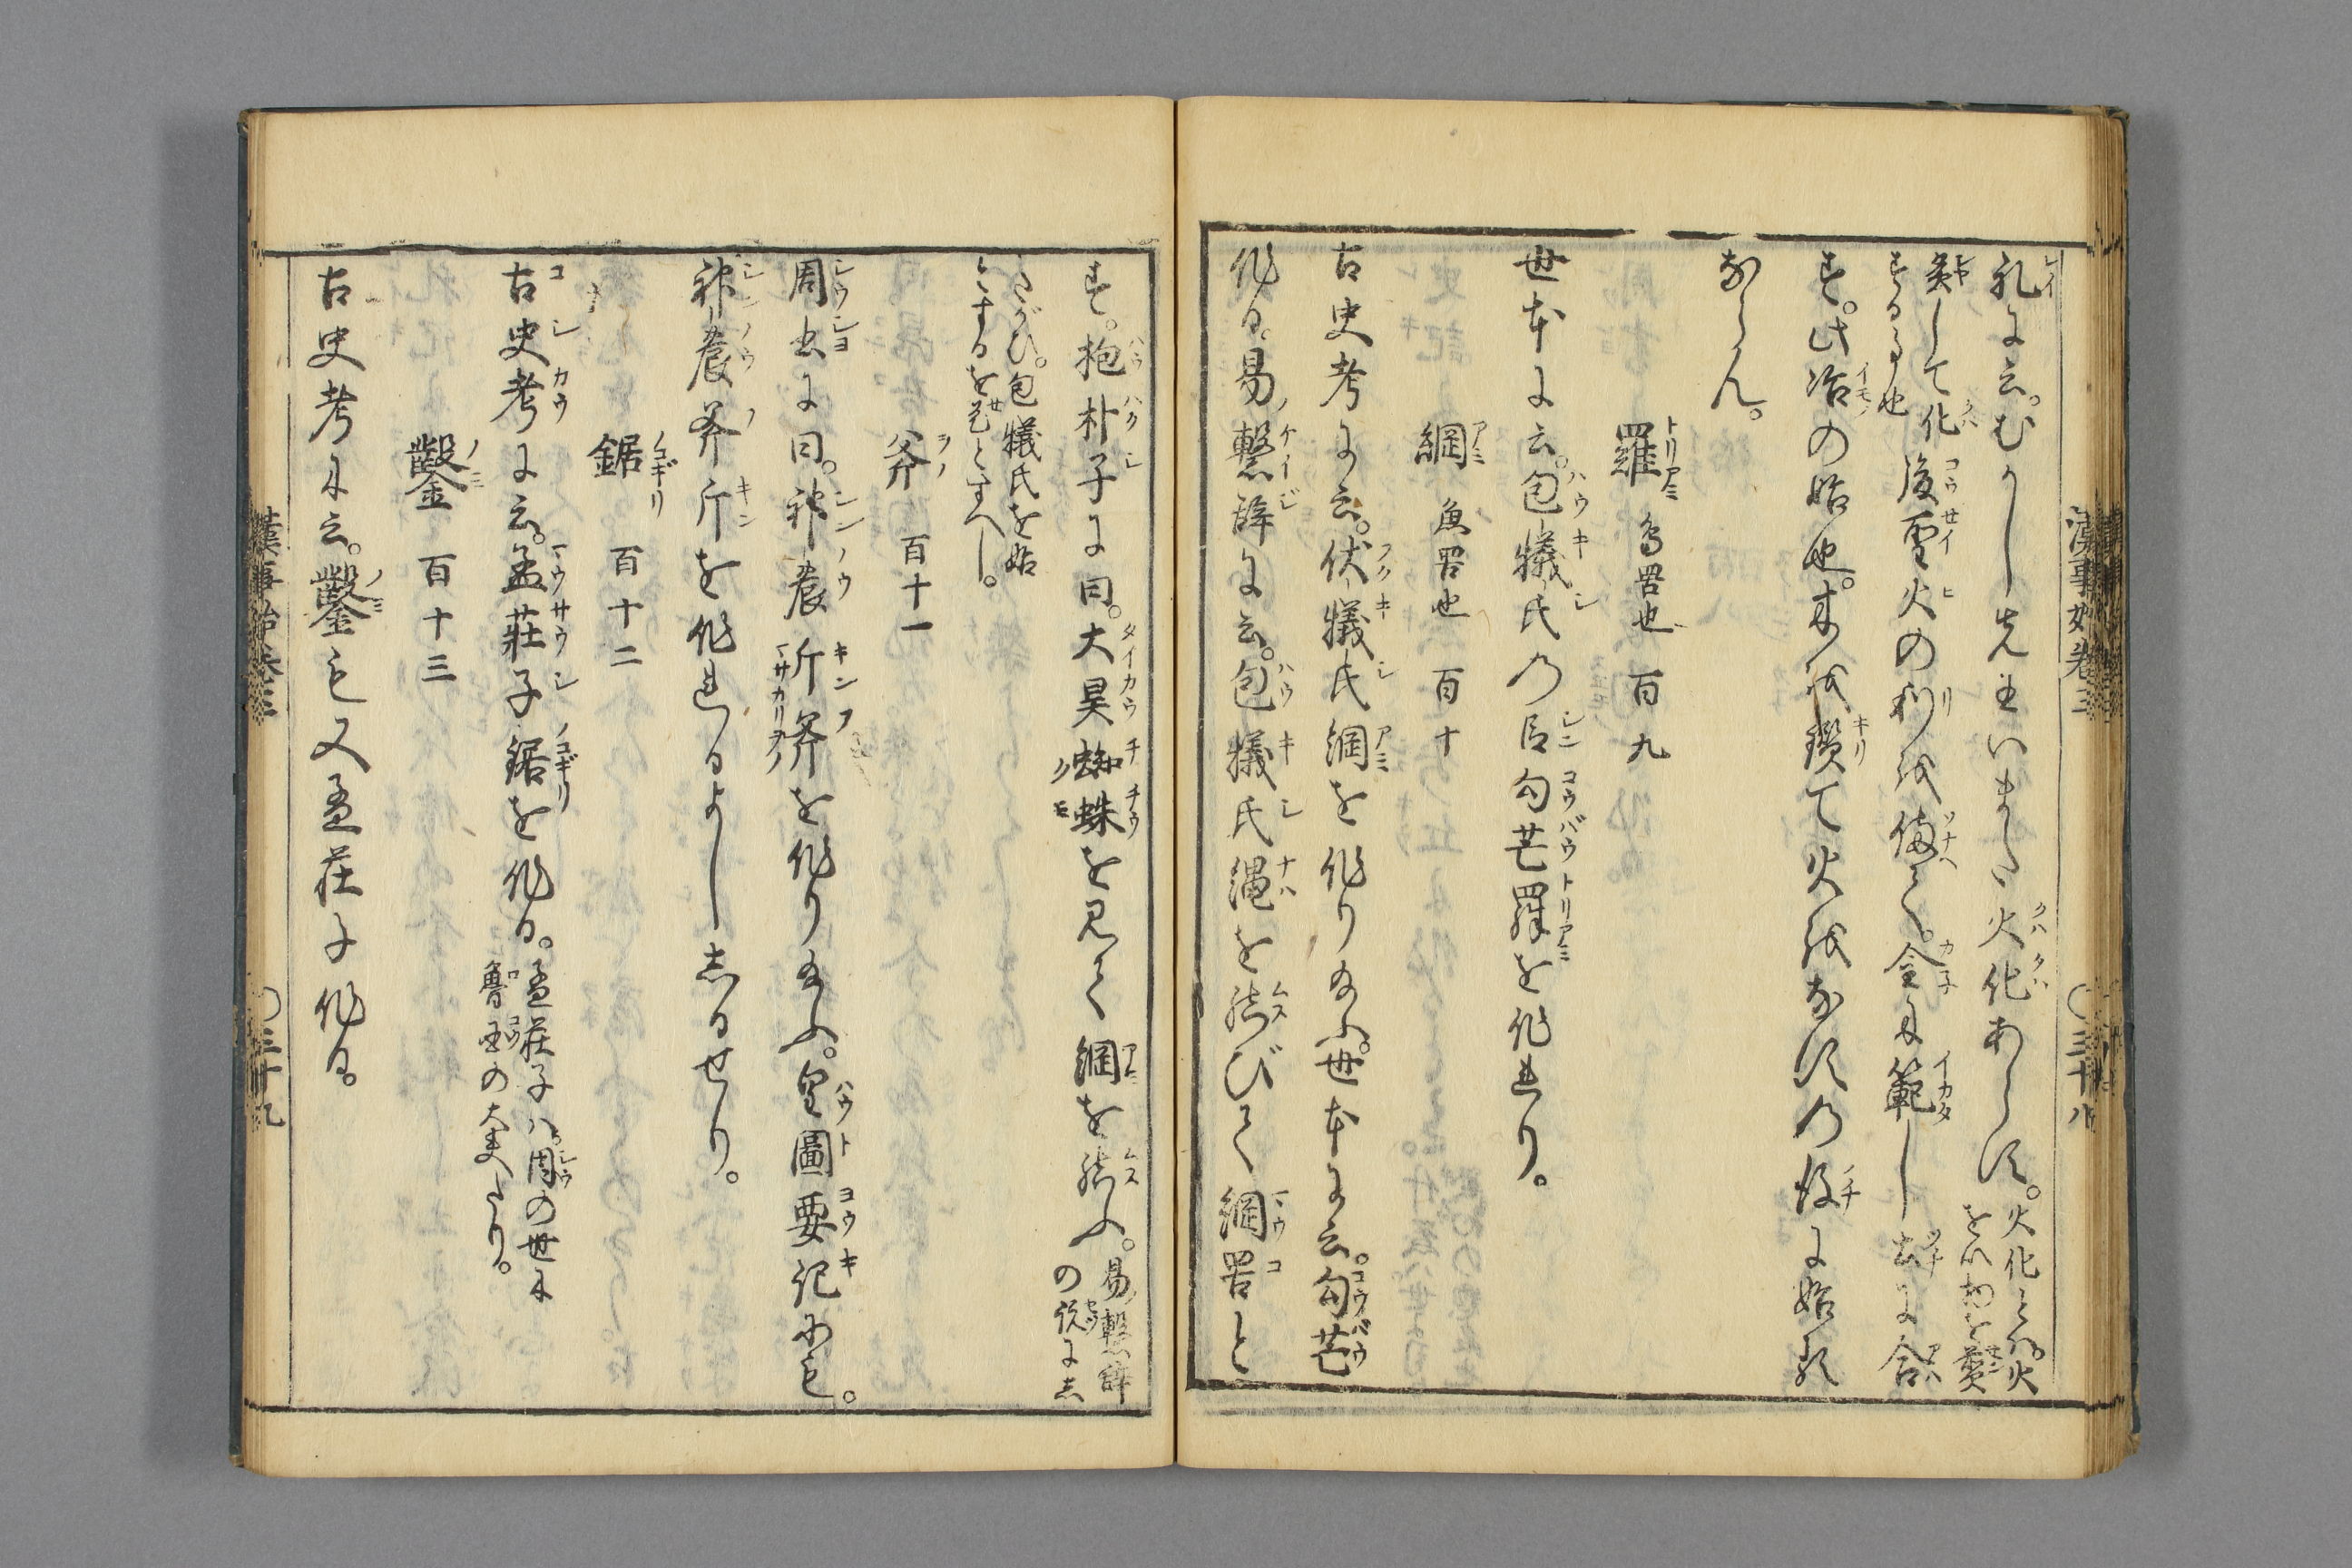 礼に云。むかし先王いまた火化あらす。火化とハ。火
をいれ物を㷟
烹して化
するる也
後聖火の利を脩て。金に範し土に合
す。此冶の始也。木を鑚て火をなすの後に始る
ならん。
羅 鳥罟也 百九
世本に云。包犧氏の臣勾芒羅を作れり。
網 魚罟也 百十
古史考に云。伏犧氏網を作り給ふ。世本に云。勾芒
作る。易ノ繫辞に云。包犧氏縄を結びて網罟と
漢事始巻三 〇三十八
す。抱朴子に曰。大昊蜘蛛を見て網を結ふ。易ノ繫辞
の説にし
たがひ。包犧氏を始
とするを是とすへし。
斧 百十一
周書に曰。神農斤斧を作り給ふ。皇圖要記にも。
神農斧斤を作れるよししるせり。
鋸 百十二
古史考に云。孟莊子鋸を作る。孟莊子ハ周の世に
魯国の大夫たり。
鑿 百十三
古史考に云。鑿も又孟莊子作る。
漢事始巻三 〇三十九